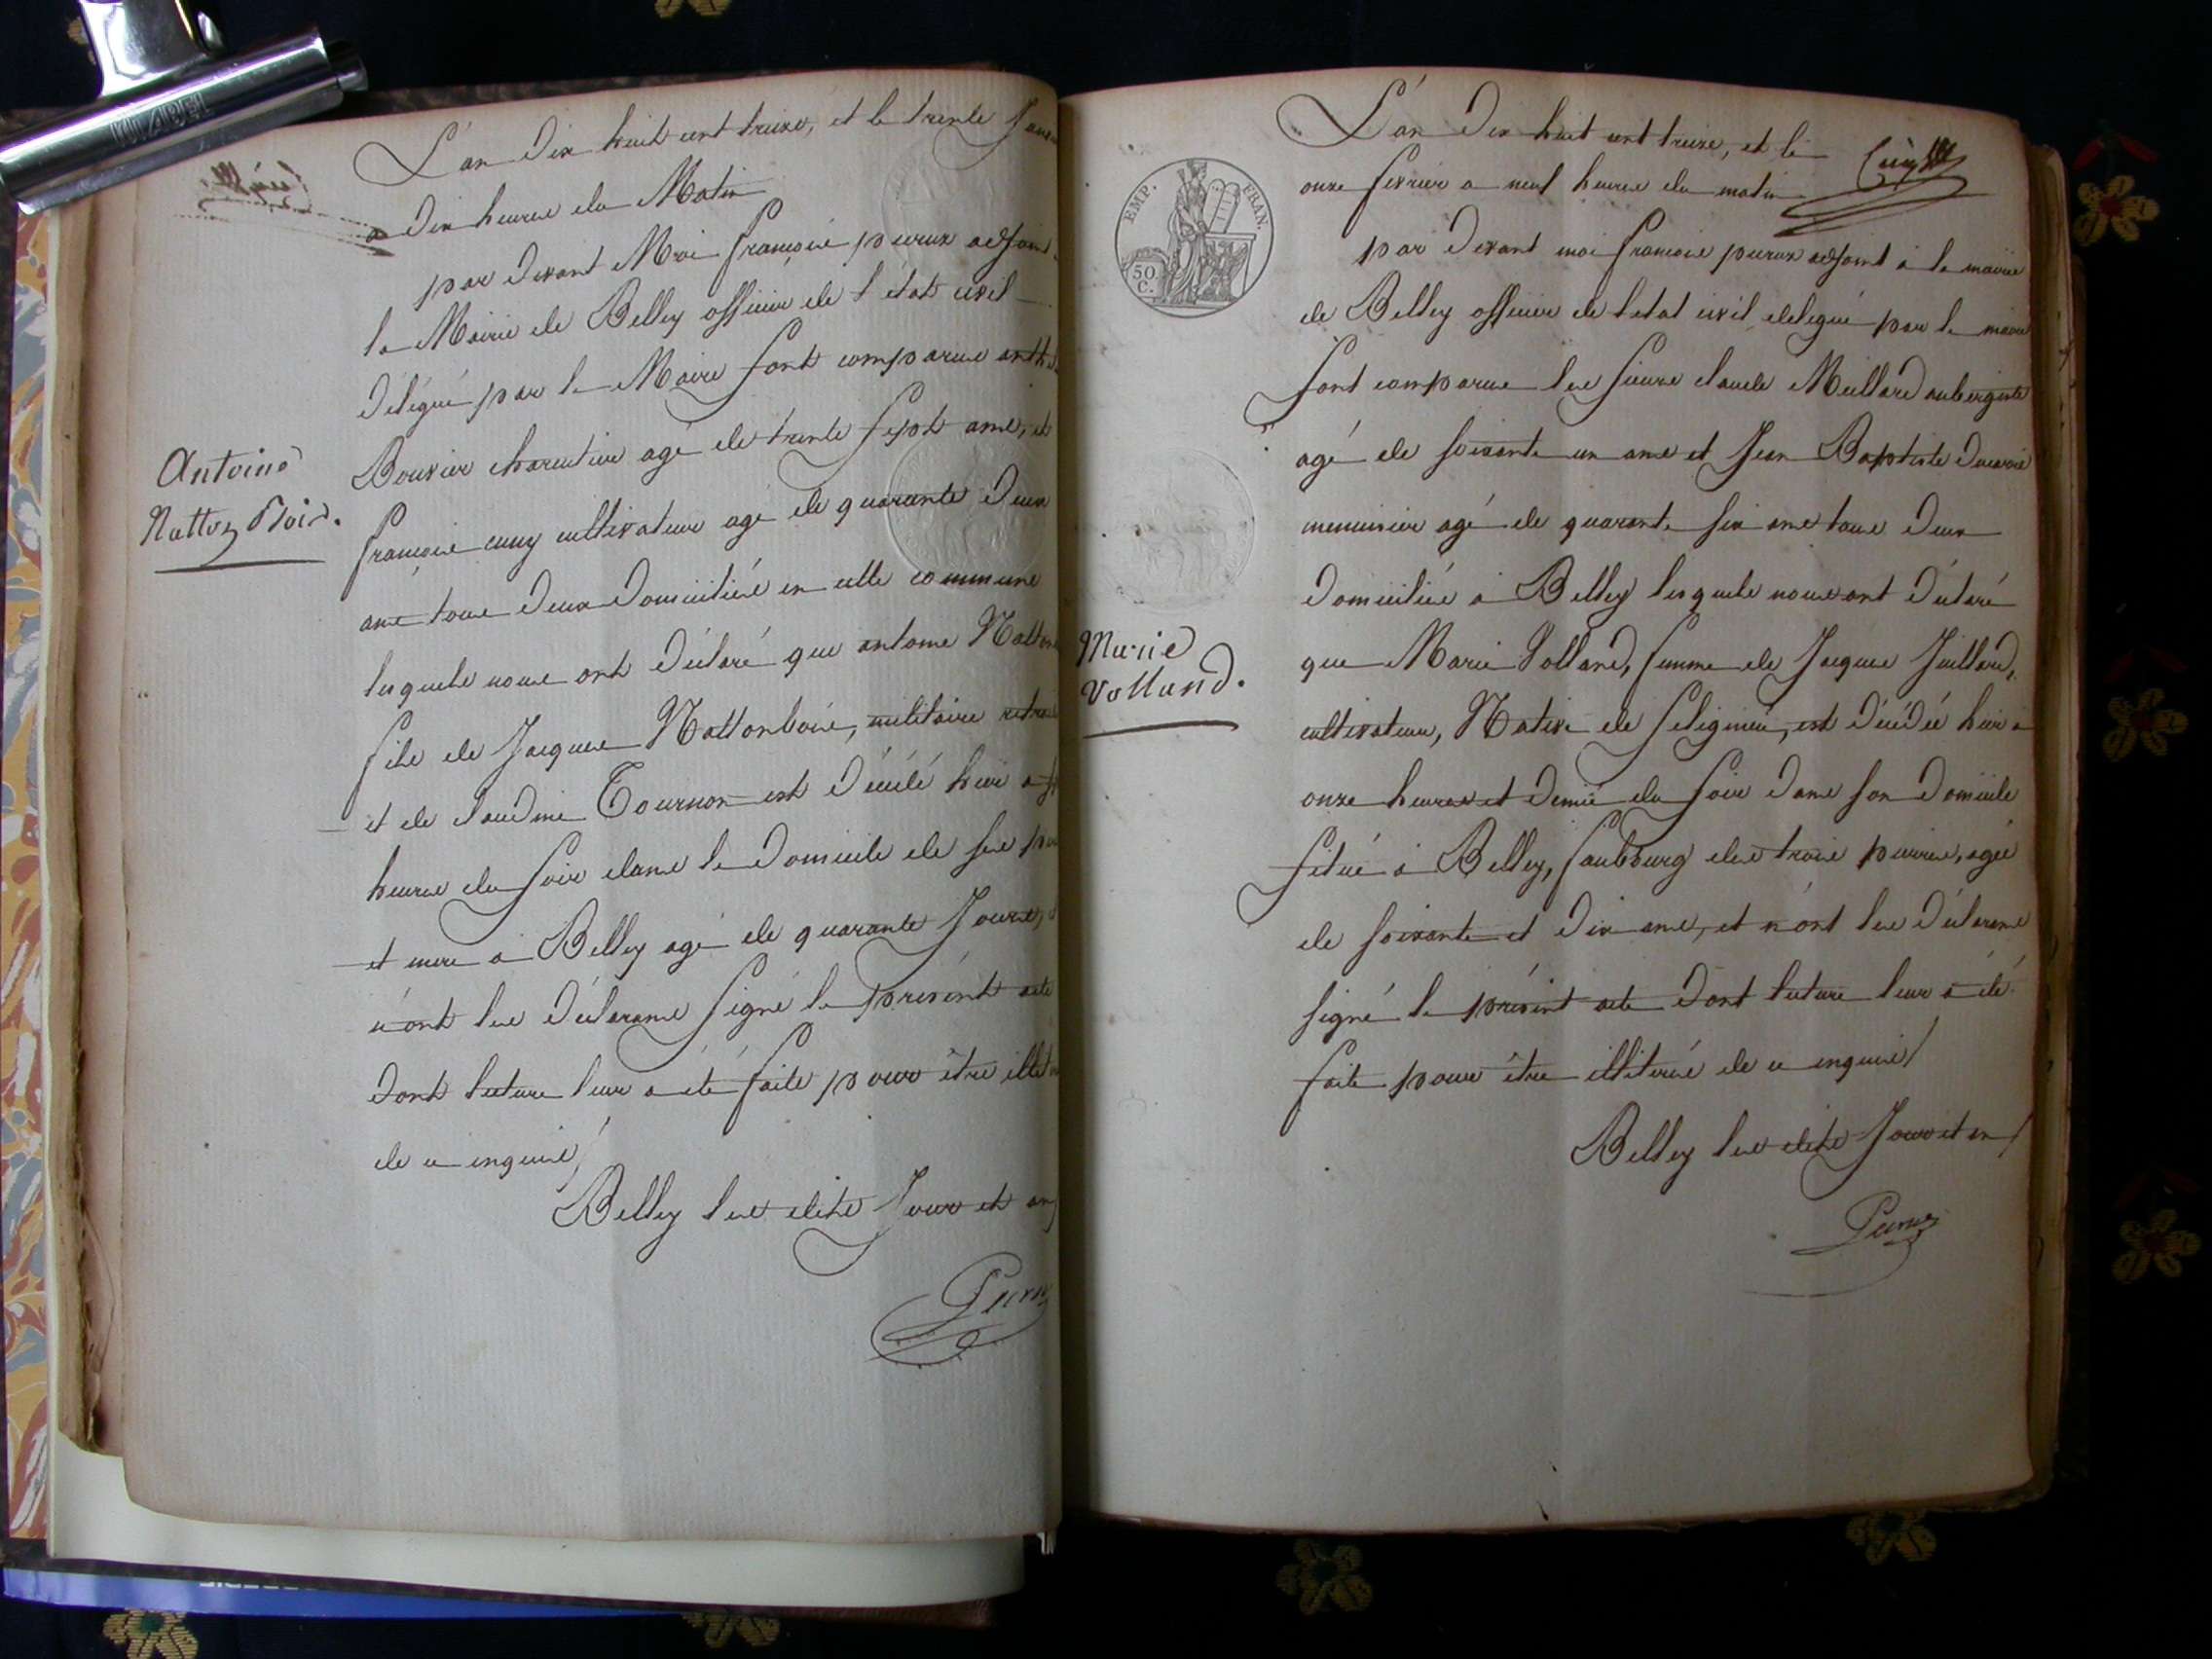 KLABEL
L'an dix huit cent treize, et le trente Janv
a dix heures du Matin
par devant Moi françois peroux adjoint
la Mairie de Belley officier de l'état civil
Délégué par le Maire sont comparus anth
Bouvier charcutier agé de trente sept ans, et
françois cuny cultivateur agé de quarante deux
ans tous deux domiciliés en cette commune
lesquels nous ont déclaré que antoine Natton
fils de Jacques Nattonbois, militaire retrai
et de claudine Tournon est décédé hier a
heures du soir dans le domicile de ses pe
et mere a Belley agé de quarante Jours,
n'ont les déclarans signé le présent acte
dont lecture leur a été faite pour être illet
de ce enquis/
Belley les dits Jour et an
Antoine
Natton Bois.
EMP. FRAN.
50
C.
L'an dix huit cent treize, et le
onze fevrier a neuf heures du matin
par devant moi françois peroux adjoint à la mairie
de Belley officier de l'etat civil delegué par le maire
sont comparus les sieurs claude Millard aubergiste
agé de soixante un ans et Jean Baptiste
menuisier agé de quarante six ans tous deux
domiciliés a Belley lesquels nous ont déclaré
que Marie Volland, femme de Jacques Juillard,
cultivateur, Native de Selignieu, est décédée hier a
onze heures et demie du soir dans son domicile
situé a Belley, faubourg des trois pierres, agée
de soixante et dix ans, et n'ont les déclarans
signé le présent acte dont lecture leur a été
faite pour être illiterés de ce enquis/
Belley les dits Jour et an/
Marie
Volland.